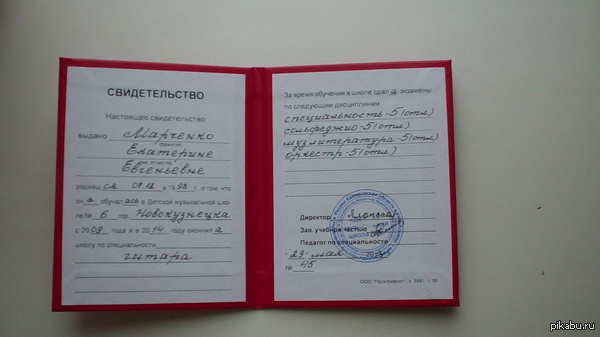 СВИДЕТЕЛЬСТВО
Настоящее свидетельство
выдано Марченко
фамилия,
Екатерине
имя, отчество
Евгеньевне
родящ ся 09.12 в 1998 г. о том, что
он а обучал ась в Детской музыкальной шко-
ле № 6 гор. Новокузнецка
с 2009 года и в 2014 году окончил а
школу по специальности
гитара
За время обучения в школе сдал а экзамены
по следующим дисциплинам
специальность-5(отл)
сольфеджио-5(отл)
муз.литература-5(отл)
оркестр-5(отл)
Директор
Зав. учебной частью
Педагог по специальности
23 мая
№ 45
pikabu.ru